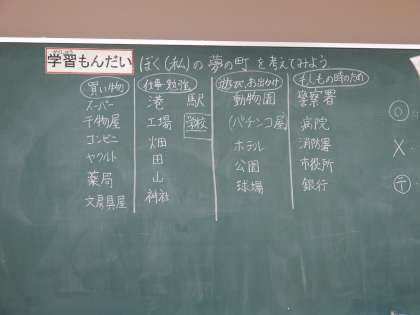 学習もんだい ぼく(私)の夢の町を考えてみよう
買い物
スーパー
干物屋
コンビニ
ヤクルト
薬局
文房具屋
仕事・勉強
港 駅
工場 学校
畑
田
山
神社
遊び、お出かけ
動物園
(パチンコ屋)
ホテル
公園
球場
もしもの時のため
警察署
病院
消防署
市役所
銀行
◎
×
〒